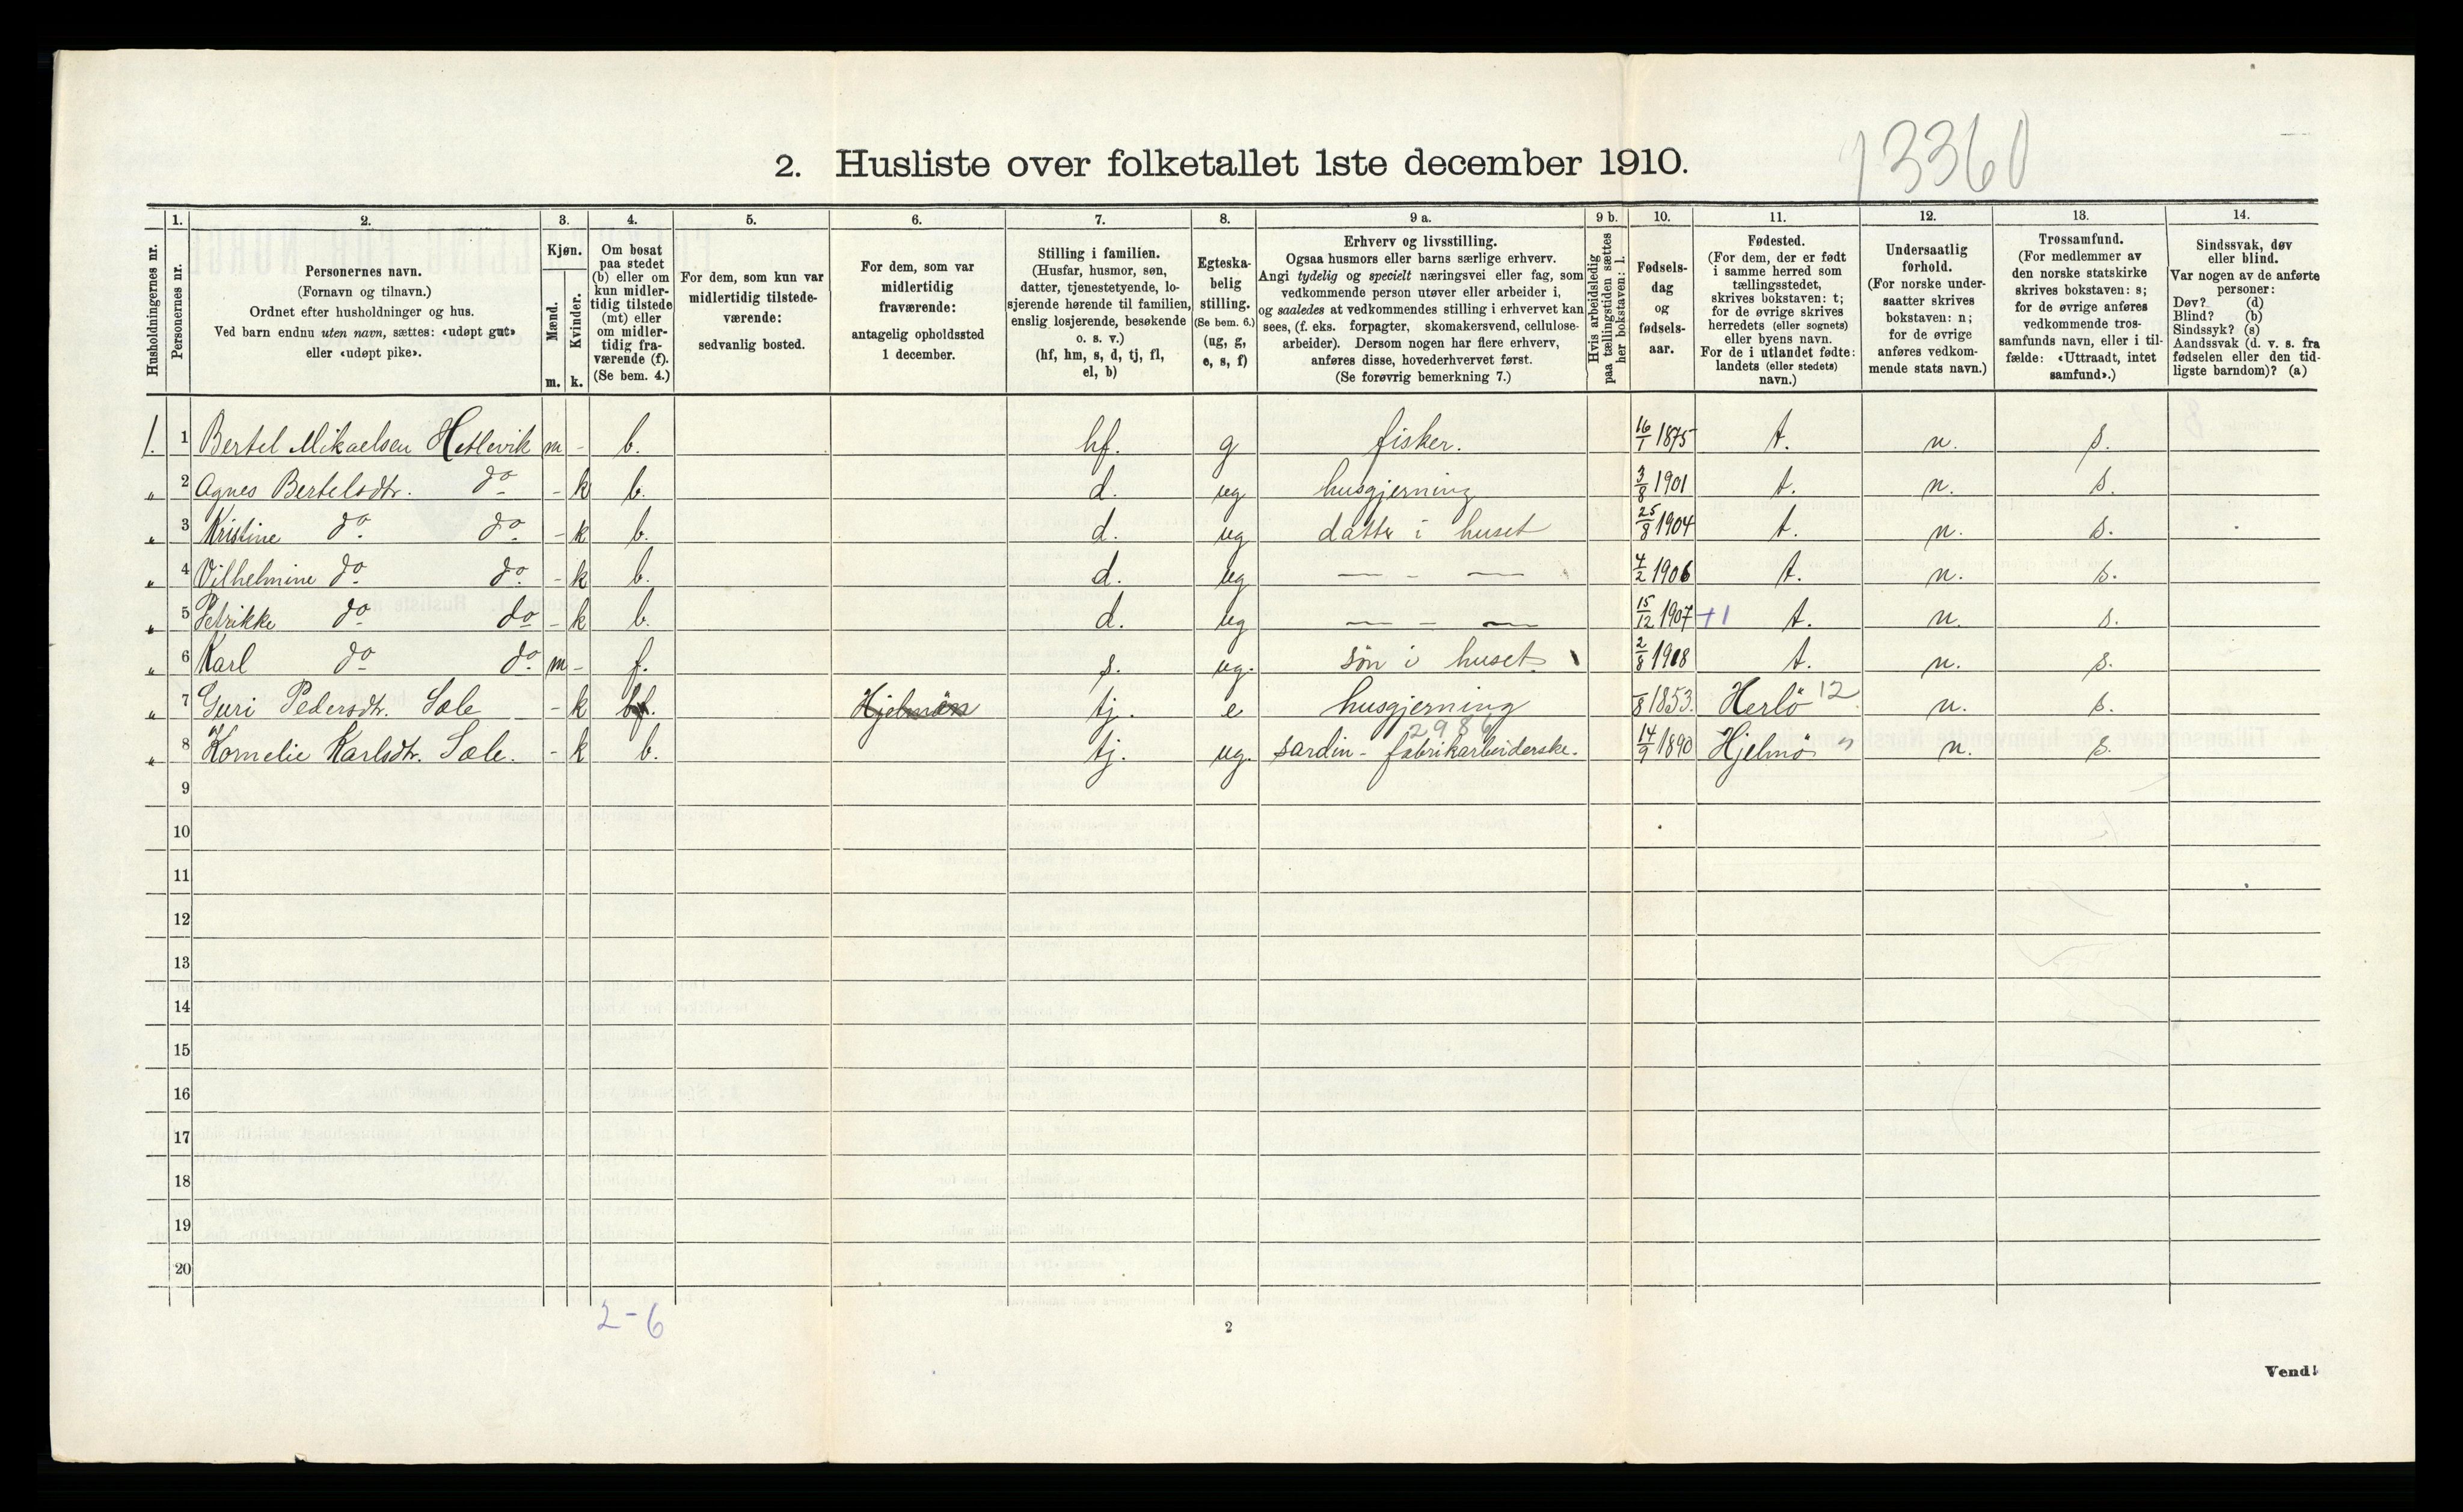 13360
2. Husliste over folketallet 1ste december 1910.
Husholdningernes nr.
1. Personernes nr.
2. Personernes navn.
(Fornavn og tilnavn.)
Ordnet efter husholdninger og hus.
Ved barn endnu uten navn, sættes: «udøpt gut»
eller «udøpt pike».
3. Kjøn.
Mænd. m.
Kvinder. k.
4. Om bosat
paa stedet
(b) eller om
kun midler-
tidig tilstede
(mt) eller
om midler-
tidig fra-
værende (f).
(Se bem. 4.)
5. For dem, som kun var
midlertidig tilstede-
værende:
sedvanlig bosted.
6. For dem, som var
midlertidig
fraværende:
antagelig opholdssted
1 december.
7. Stilling i familien.
(Husfar, husmor, søn,
datter, tjenestetyende, lo-
sjerende hørende til familien,
enslig losjerende, besøkende
o. s. v.)
(hf, hm, s, d, tj, fl,
el, b)
8. Egteska-
belig
stilling.
(Se bem. 6.)
(ug, g,
e, s, f)
9 a. Erhverv og livsstilling.
Ogsaa husmors eller barns særlige erhverv.
Angi tydelig og specielt næringsvei eller fag, som
vedkommende person utøver eller arbeider i,
og saaledes at vedkommendes stilling i erhvervet kan
sees, (f. eks. forpagter, skomakersvend, cellulose-
arbeider). Dersom nogen har flere erhverv,
anføres disse, hovederhvervet først.
(Se forøvrig bemerkning 7.)
9 b. Hvis arbeidsledig
paa tællingstiden sættes
her bokstaven: l.
10. Fødsels-
dag
og
fødsels-
aar.
11. Fødested.
(For dem, der er født
i samme herred som
tællingsstedet,
skrives bokstaven: t;
for de øvrige skrives
herredets (eller sognets)
eller byens navn.
For de i utlandet fødte:
landets (eller stedets)
navn.)
12. Undersaatlig
forhold.
(For norske under-
saatter skrives
bokstaven: n;
for de øvrige
anføres vedkom-
mende stats navn.)
13. Trossamfund.
(For medlemmer av
den norske statskirke
skrives bokstaven: s;
for de øvrige anføres
vedkommende tros-
samfunds navn, eller i til-
fælde: «Uttraadt, intet
samfund».)
14. Sindssvak, døv
eller blind.
Var nogen av de anførte
personer:
Døv? (d)
Blind? (b)
Sindssyk? (s)
Aandssvak (d. v. s. fra
fødselen eller den tid-
ligste barndom)? (a)
1. 1 Bertel Mikaelsen Hetlevik m - b. hf. g fisker. 16/1 1875 t. n. s.
„ 2 Agnes Bertelsdtr. do - k b. d. ug husgjerning 3/8 1901 t. n. s.
„ 3 Kristine do do - k b. d. ug datter i huset 25/8 1904 t. n. s.
„ 4 Vilhelmine do do - k b. d. ug — - — 4/2 1906 t. n. s.
„ 5 Petrikke do do - k b. d. ug — - — 15/12 1907 +1 t. n. s.
„ 6 Karl do do m - f. s. ug. søn i huset 2/8 1908 t. n. s.
„ 7 Guri Pedersdtr. Sæle - k b. Hjelmön tj. e husgjerning /8 1853. Herlö 12 n. s.
2986
„ 8 Kornelie Karlsdtr. Sæle. - k b. tj. ug. sardin-fabrikarbeiderske. 14/9 1890 Hjelmö " n. s.
9
10
11
12
13
14
15
16
17
18
19
20
2-6
2
Vend!